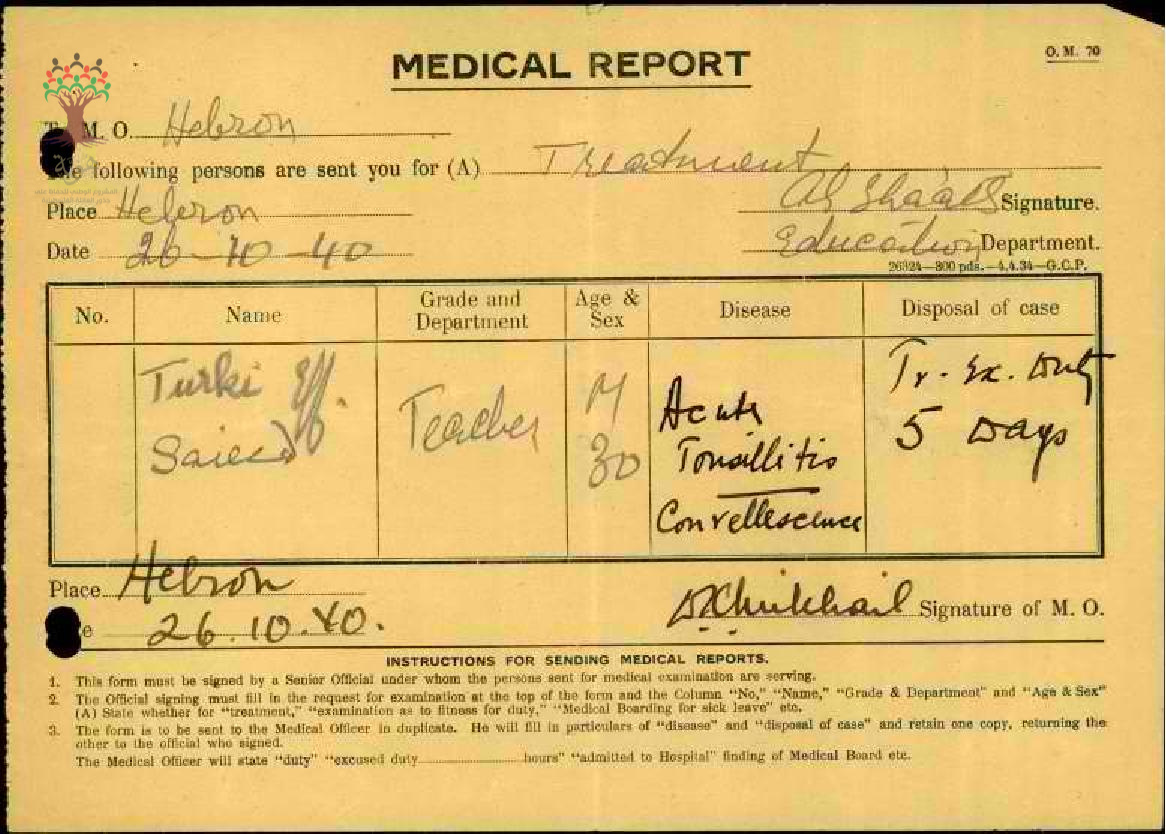 O.M. 70
MEDICAL REPORT
M. O. Hebron
following persons are sent you for (A) Treatment
Place Hebron Signature.
Date 26-10-40 Education Department.
26824—800 pds.—4.4.34—G.C.P.
No. Name Grade and Department Age & Sex Disease Disposal of case
Turki Eff. Teacher M Acute Tr. Ex. Duty
Saieed 30 Tonsillitis 5 Days
Convellescence
Place Hebron
26.10.40. Signature of M. O.
INSTRUCTIONS FOR SENDING MEDICAL REPORTS.
1. This form must be signed by a Senior Official under whom the persons sent for medical examination are serving.
2. The Official signing must fill in the request for examination at the top of the form and the Column "No," "Name," "Grade & Department" and "Age & Sex"
(A) State whether for "treatment," "examination as to fitness for duty," "Medical Boarding for sick leave" etc.
3. The form is to be sent to the Medical Officer in duplicate. He will fill in particulars of "disease" and "disposal of case" and retain one copy, returning the
other to the official who signed.
The Medical Officer will state "duty" "excused duty..............................hours" "admitted to Hospital" finding of Medical Board etc.